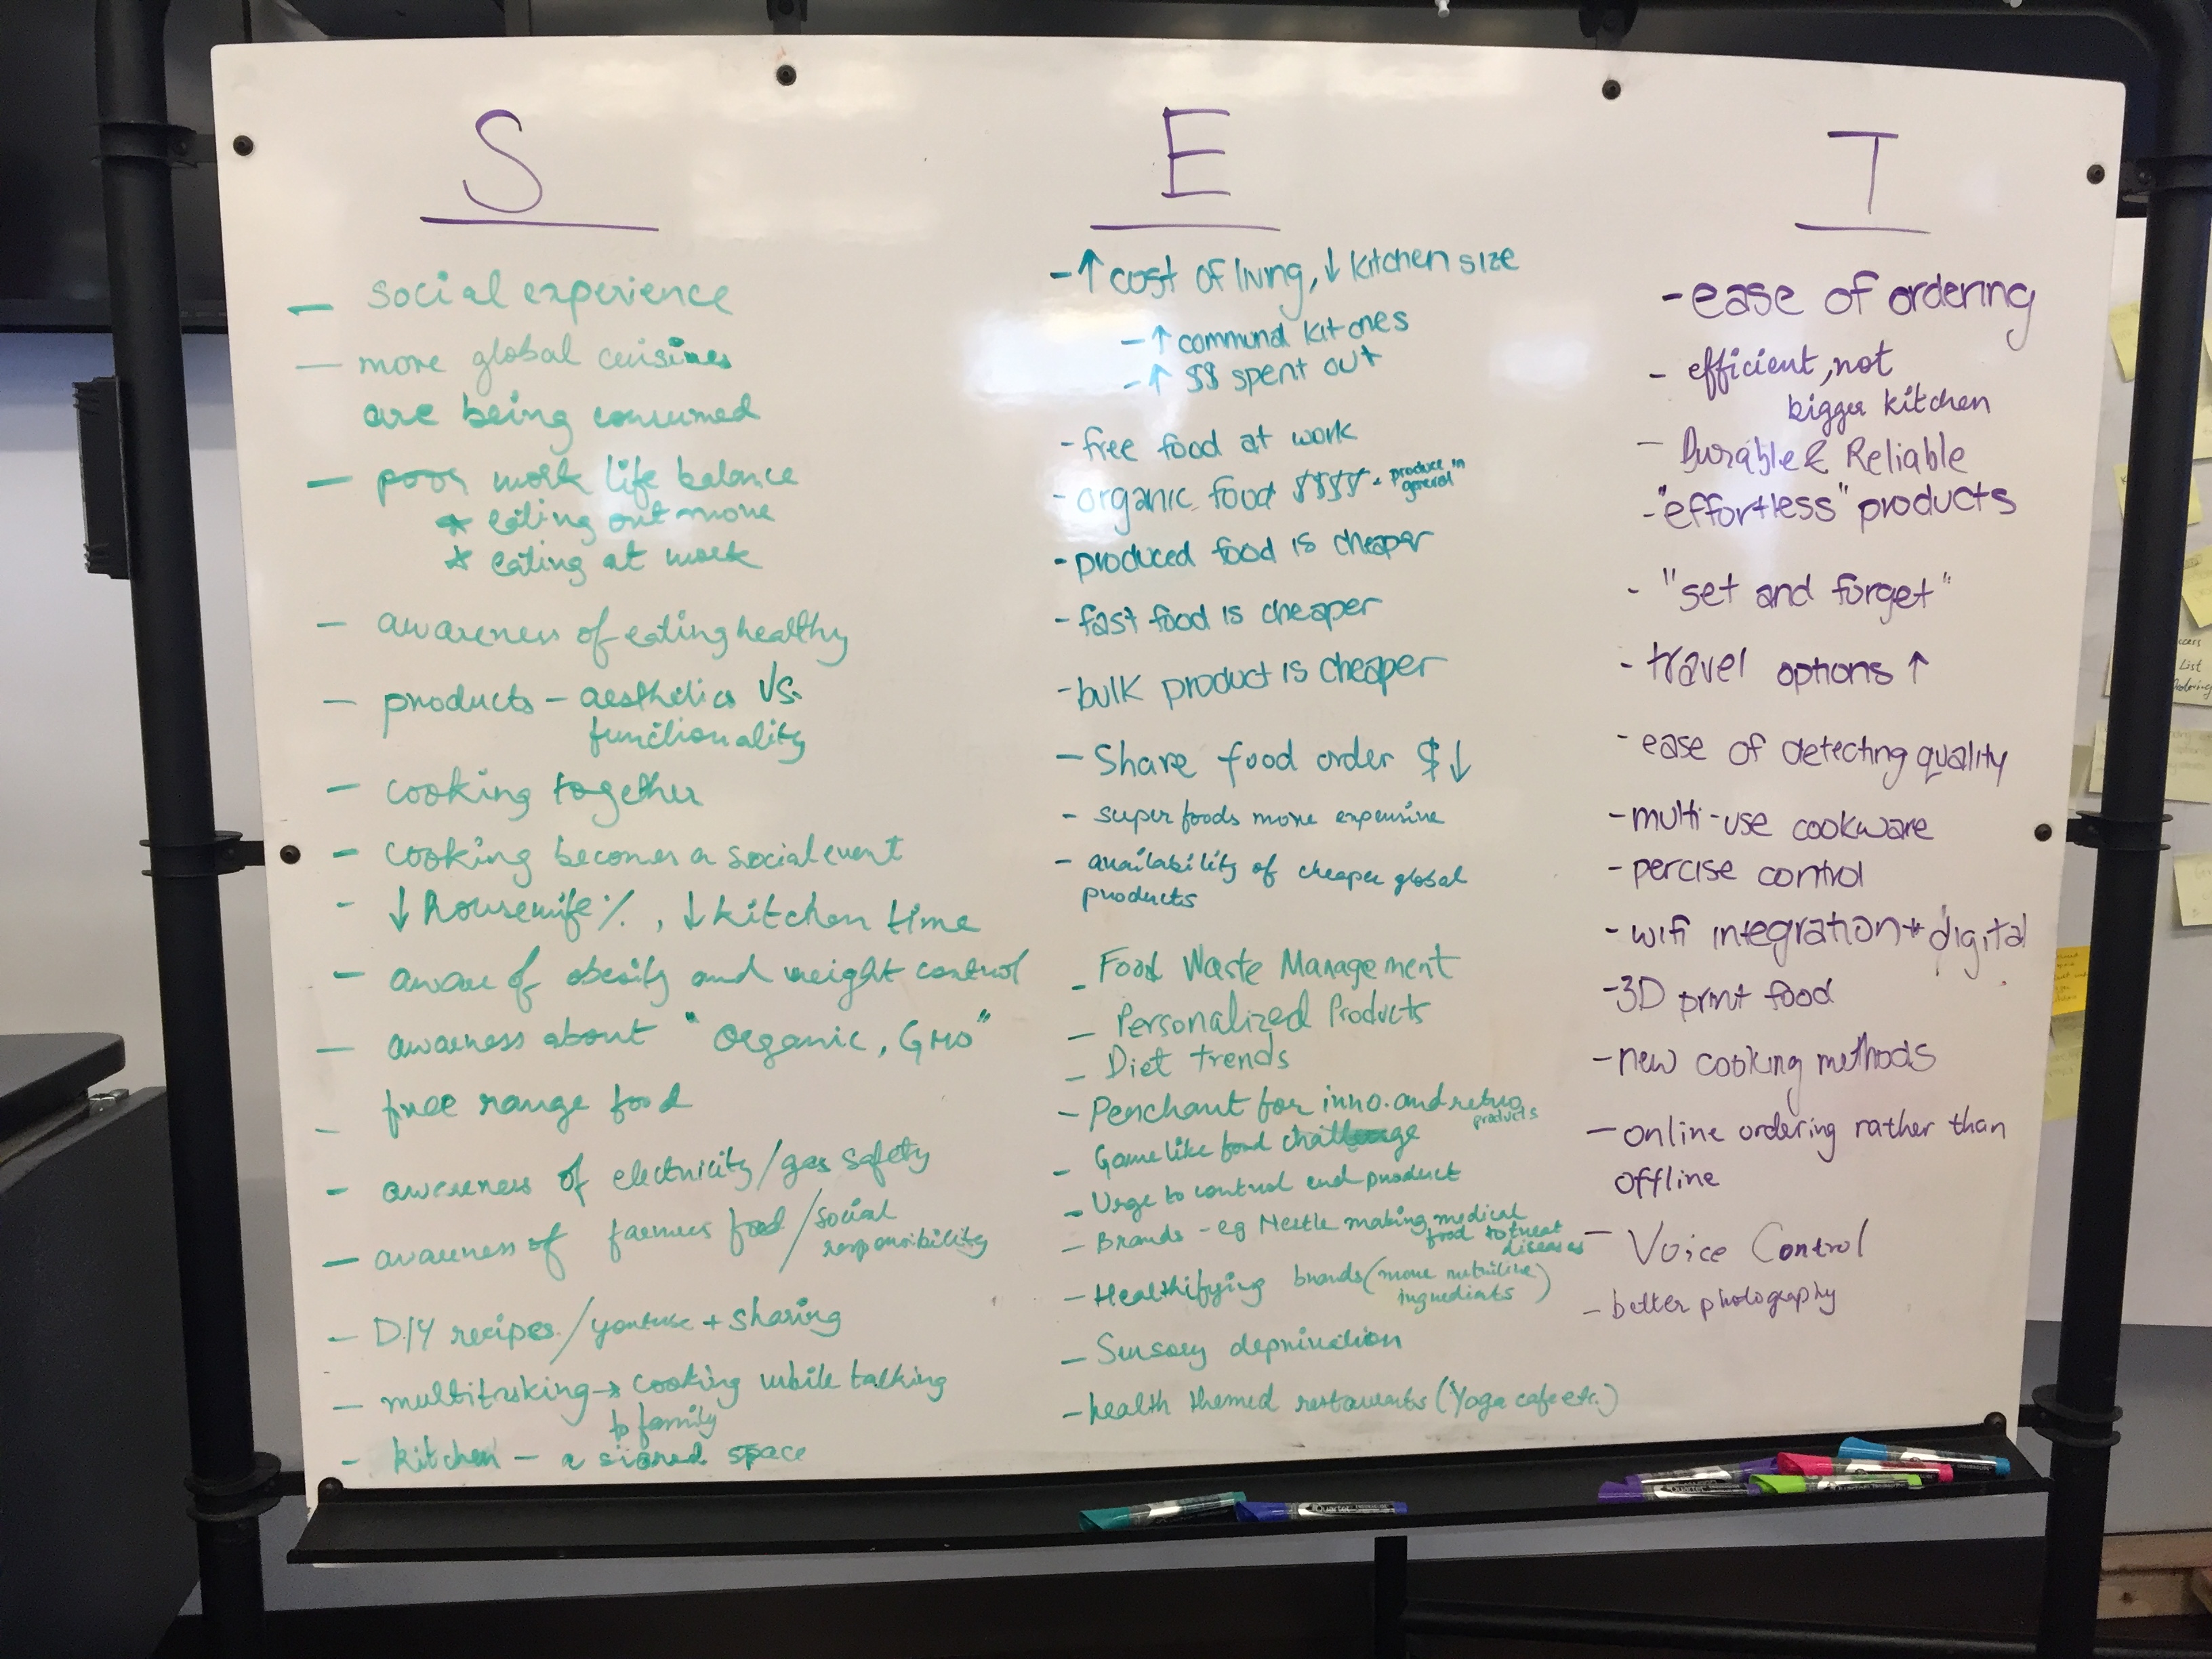 S
— social experience
— more global cuisines
are being consumed
— poor work life balance
* eating out more
* eating at work
— awareness of eating healthy
— products — aesthetics vs.
functionality
— cooking together
— cooking becomes a social event
- ↓ housewife %, ↓ kitchen time
— aware of obesity and weight control
— awareness about "Organic, GMO"
— free range food
— awareness of electricity/gas safety
— awareness of farmers food / social
responsibility
— DIY recipes / youtube + sharing
— multitasking → cooking while talking
to family
- kitchen — a shared space
E
- ↑ cost of living, ↓ kitchen size
- ↑ communal kitches
- ↑ $$ spent out
- free food at work
- organic food $$$$ - produce in
general
- produced food is cheaper
- fast food is cheaper
- bulk product is cheaper
— Share food order $↓
- super foods more expensive
- availability of cheaper global
products
- Food Waste Management
— Personalized Products
— Diet trends
— Penchant for inno. and retro
products
- Game like food challenge
- Urge to control end product
- Brands - eg Nestle making medical
food to treat
diseases
- Healthifying brands (more nutritive
ingredients)
— Sensory deprivation
- health themed restaurants (Yoga cafe etc.)
T
- ease of ordering
- efficient, not
bigger kitchen
- Durable & Reliable
- "effortless" products
- "set and forget"
- travel options ↑
- ease of detecting quality
- multi-use cookware
- percise control
- wifi integration + digital
- 3D print food
- new cooking methods
- online ordering rather than
offline
- Voice Control
- better photography
List
Quartet